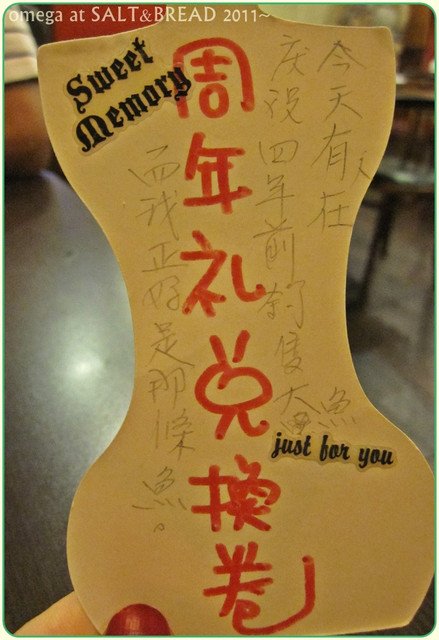 omega at SALT&BREAD 2011~
Sweet
Memory
今天有人在
庆祝四年前钓隻大魚
周年礼兑換卷
而我正好是那條魚。
just for you